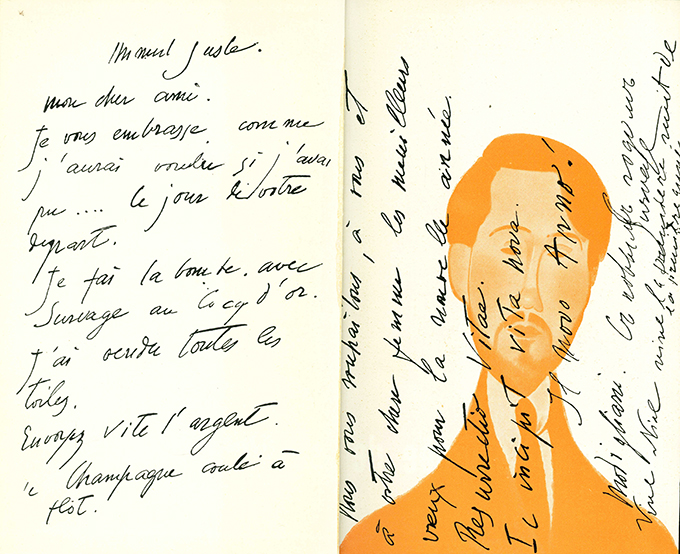 Minuit juste.
mon cher ami.
Je vous embrasse comme
j'aurai voulu si j'avai
pu .... le jour de votre
depart.
Je fai la bombe avec
Survage au Cocq d'or.
J'ai vendu toutes les
toiles.
Envoyez vite l'argent.
le Champagne coule à
flot.
nous vous souhaitons, à vous et
à votre chere femme les meilleurs
vœux pour la nouvelle année.
Resurrectio Vitae.
Ic incipit vita nova.
Il novo Anno!
Modigliani.
Survage
Vive Nice vive la nuit de
la première